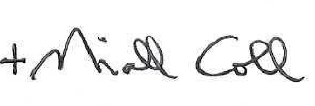 + Niall Coll